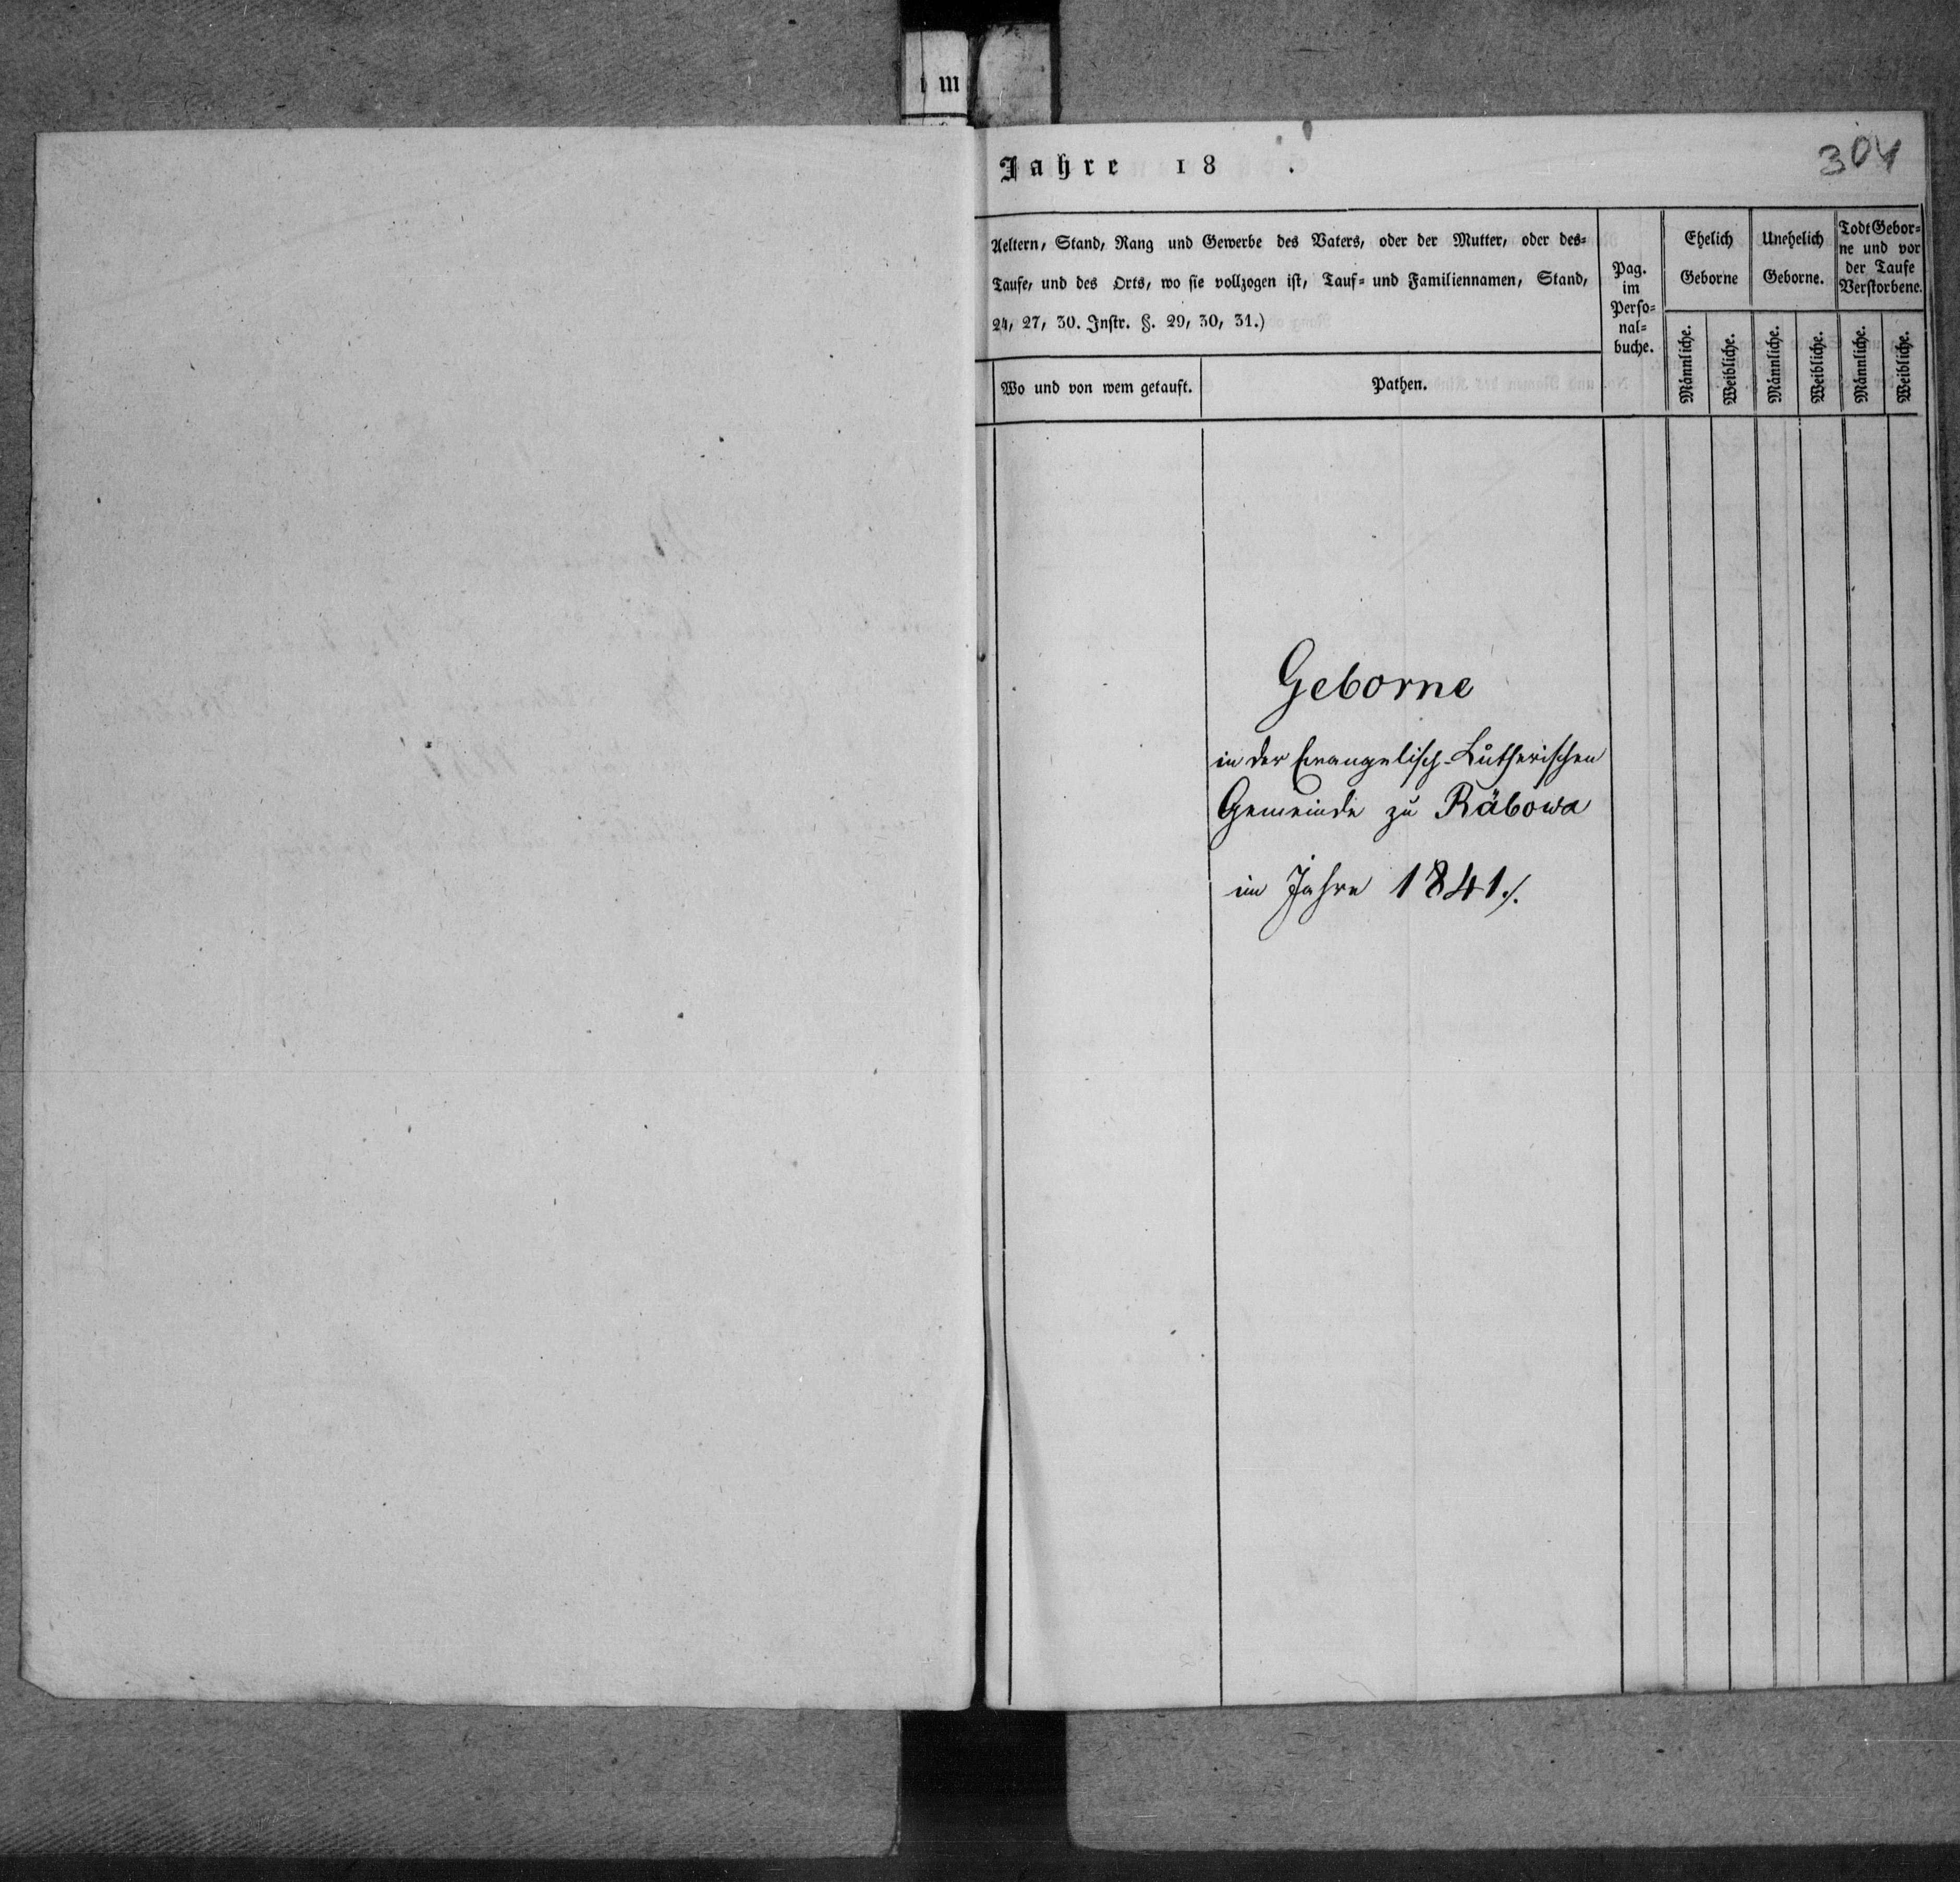 im
Jahre 18 .
304
Aeltern, Stand, Rang und Gewerbe des Vaters, oder der Mutter, oder des-
Taufe, und des Orts, wo sie vollzogen ist, Tauf- und Familiennamen, Stand,
24, 27, 30. Instr. §. 29, 30, 31.)
Wo und von wem getauft.
Pathen.
Pag.
im
Perso-
nal-
buche.
Ehelich
Geborne
Unehelich
Geborne.
Todt Gebor-
ne und vor
der Taufe
Verstorbene.
Männliche.
Weibliche.
Männliche.
Weibliche.
Männliche.
Weibliche.
Geborne
in der Evangelisch-Lutherischen
Gemeinde zu Räbowa
im Jahre 1841./.